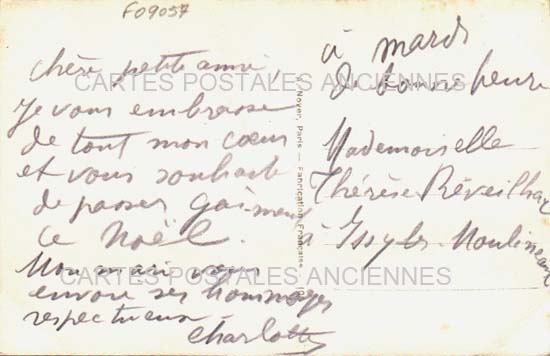 F09057
Chère petite amie,
je vous embrasse
de tout mon cœur
et vous souhaite
de passer gaiment
ce Noël.
Mon mari vous
envoie ses hommages
respectueux
Charlotte
à mardi
de bonne heure
Mademoiselle
Thérèse Réveilhac
à Issy les Moulineaux
Noyer, Paris — Fabrication Française
CARTES POSTALES ANCIENNES
CARTES POSTALES ANCIENNES